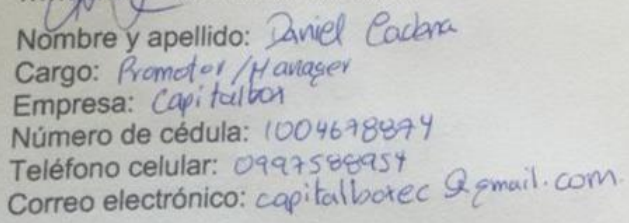 Nombre y apellido: Daniel Cadena
Cargo: Promotor / Manager
Empresa: Capitalbox
Número de cédula: 1004678874
Teléfono celular: 0997588954
Correo electrónico: capitalboxec @gmail.com.